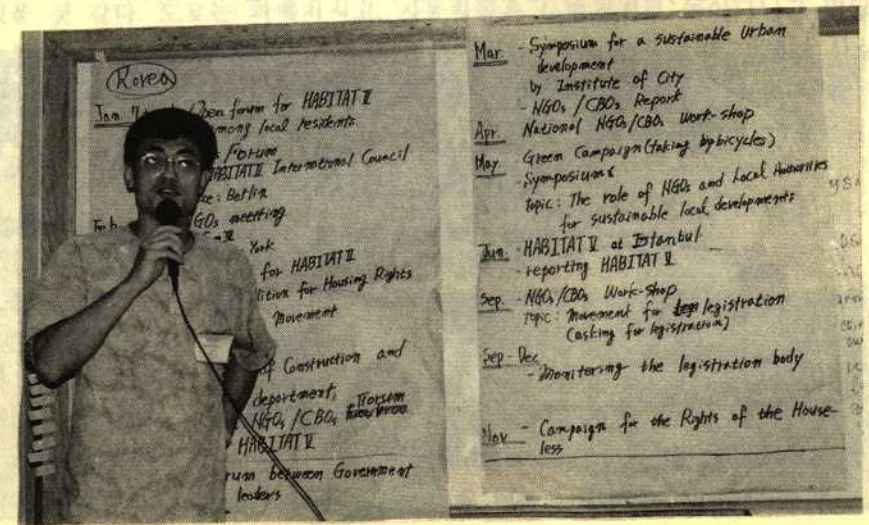 Korea
Jan. Open forum for HABITAT II
among local residents
Forum
HABITAT II International Council
: Berlin
Feb GOs meeting
York
for HABITAT II
lition for Housing Rights
Movement
of Construction and
department,
NGOs/CBOs Forum
HABITAT II
rum between Government
leaders
Mar. - Symposium for a sustainable Urban
development
by Institute of City
- NGOs/CBOs Report
Apr. National NGOs/CBOs Work-shop
May Green Campaign (taking bybicycles)
- Symposiums
Topic: The role of NGOs and Local Authorities
for sustainable local developments
Jun. - HABITAT II at Istanbul
- reporting HABITAT II
Sep. - NGOs/CBOs Work-shop
Topic: Movement for legistration
(asking for legistration)
Sep-Dec
- Monitoring the legistration body
Nov - Campaign for the Rights of the House-
less